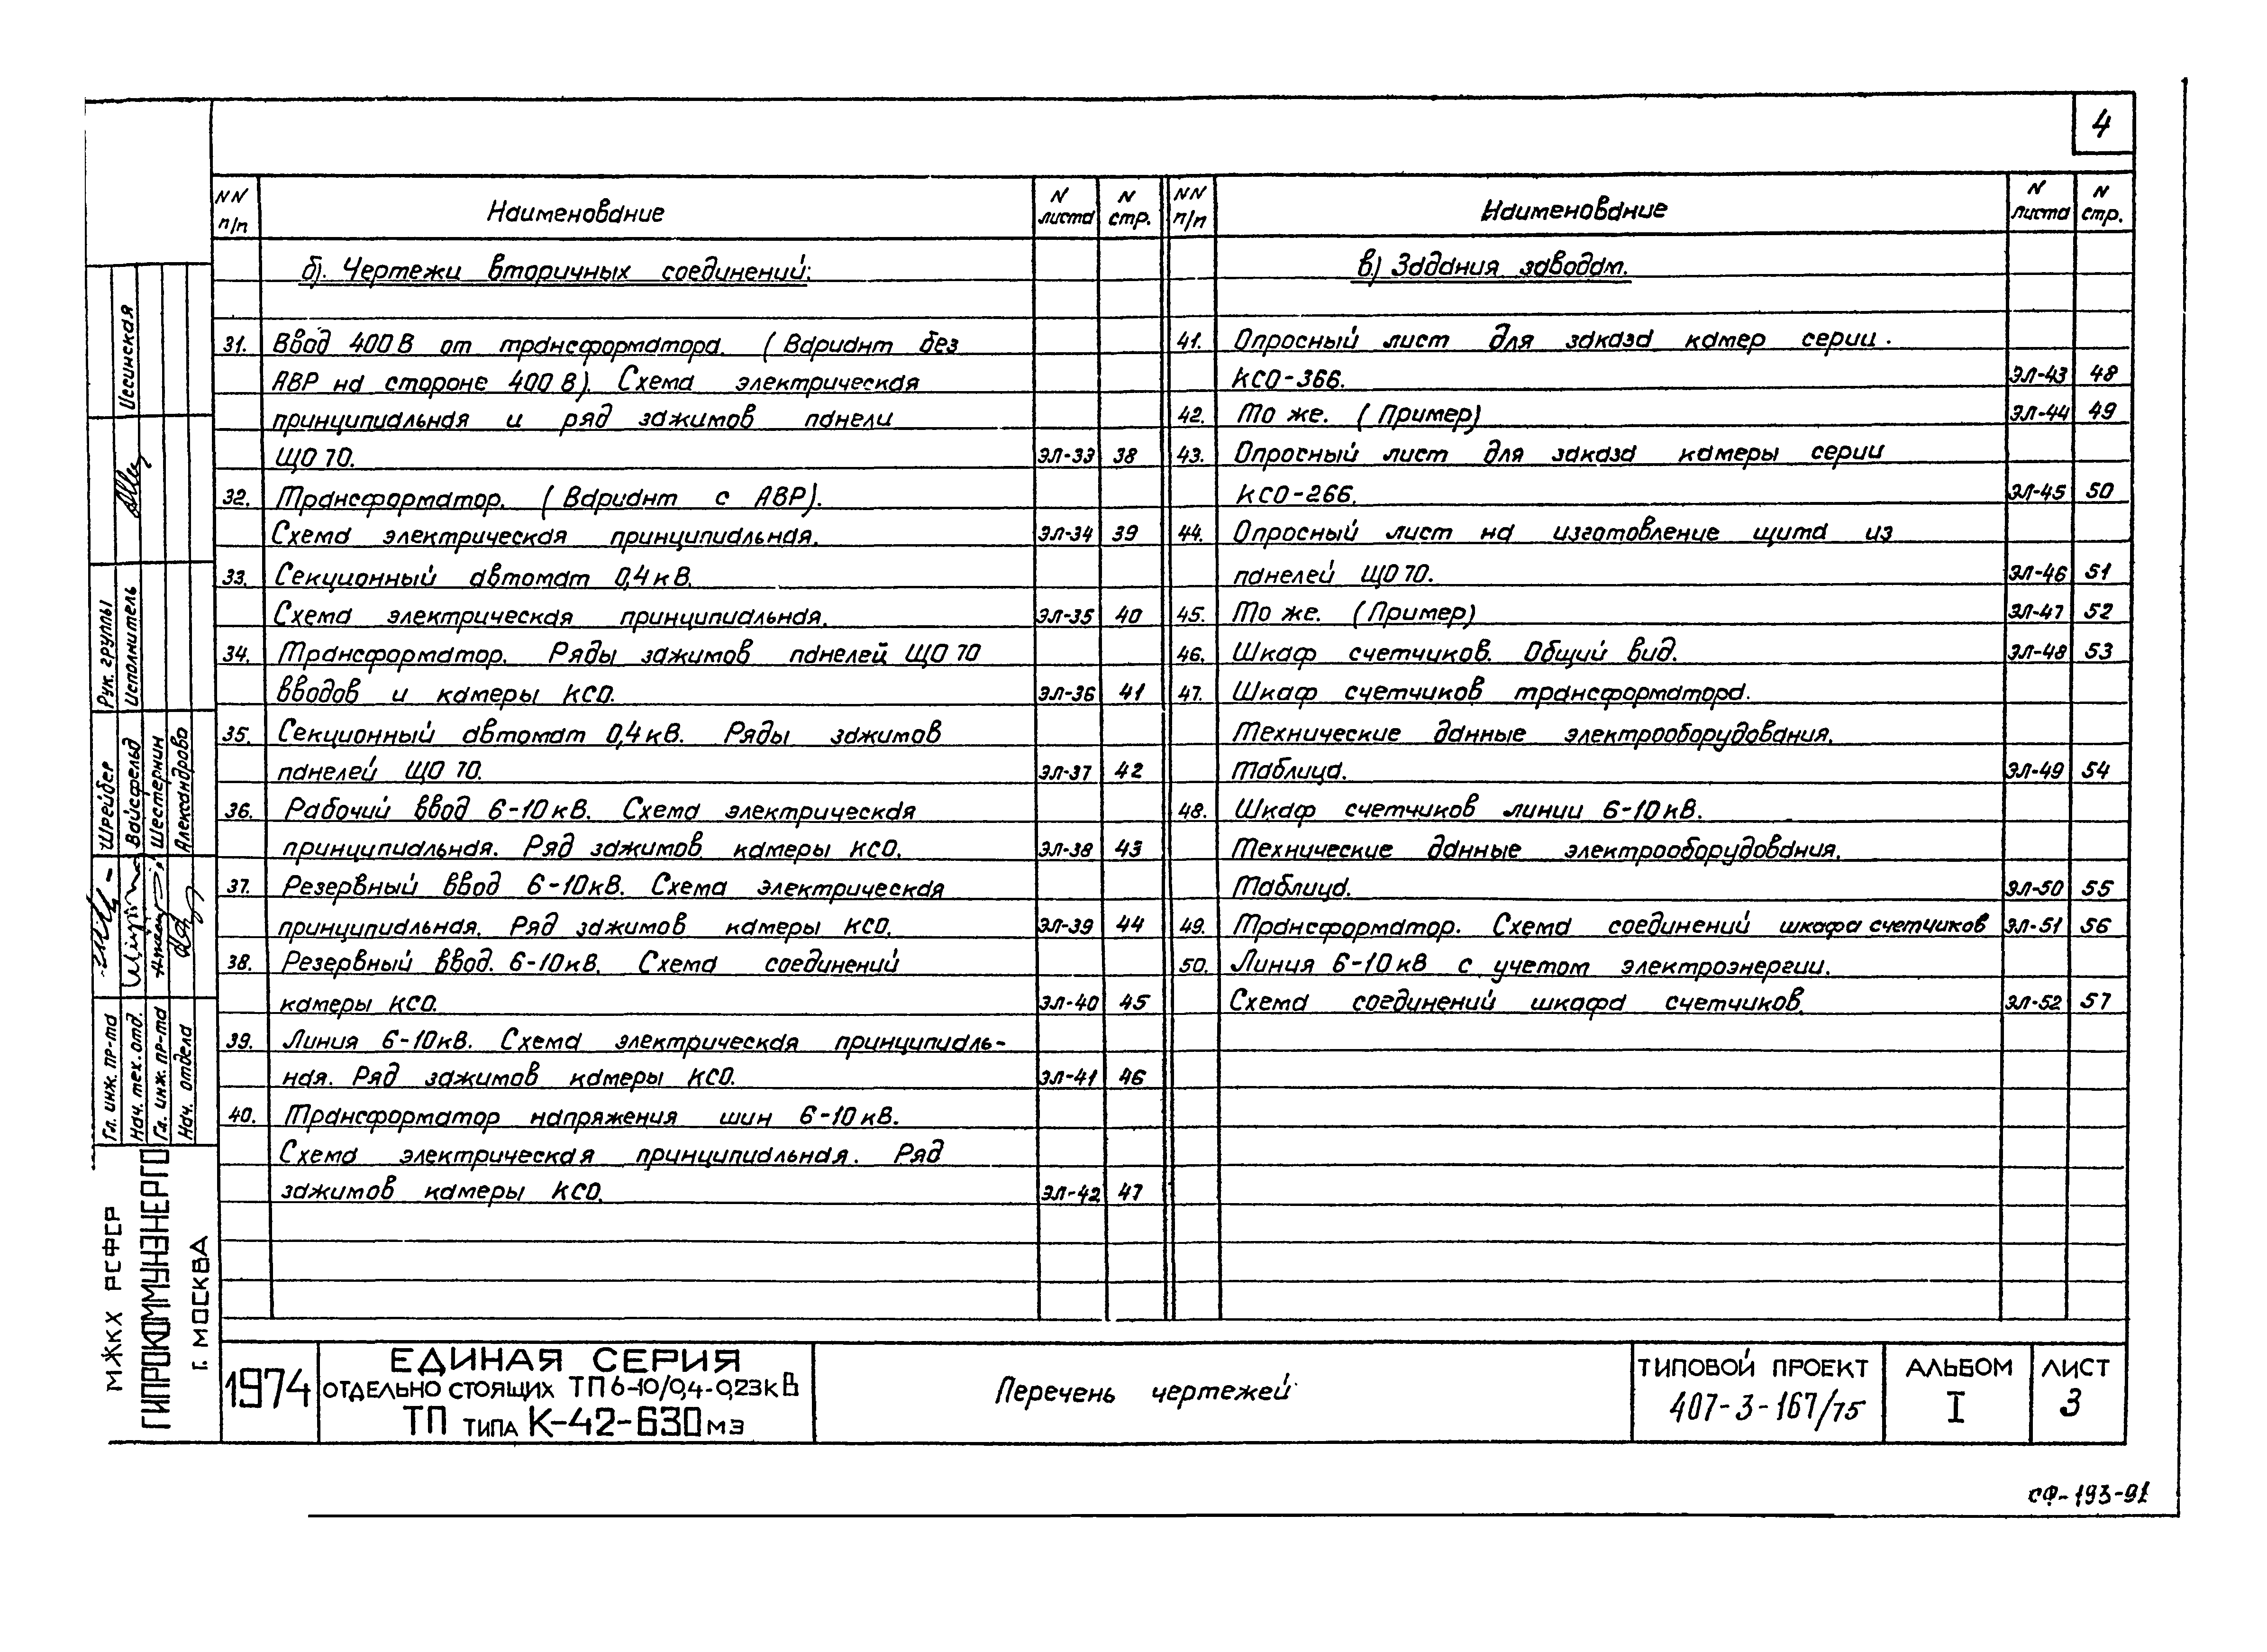 4
NN п/п Наименование N листа N стр.
б). Чертежи вторичных соединений:
31. Ввод 400В от трансформатора. (Вариант без
АВР на стороне 400 В). Схема электрическая
принципиальная и ряд зажимов панели
ЩО 70. ЭЛ-33 38
32. Трансформатор. (Вариант с АВР).
Схема электрическая принципиальная. ЭЛ-34 39
33. Секционный автомат 0,4 кВ.
Схема электрическая принципиальная. ЭЛ-35 40
34. Трансформатор. Ряды зажимов панелей ЩО 70
вводов и камеры КСО. ЭЛ-36 41
35. Секционный автомат 0,4 кВ. Ряды зажимов
панелей ЩО 70. ЭЛ-37 42
36. Рабочий ввод 6-10 кВ. Схема электрическая
принципиальная. Ряд зажимов камеры КСО. ЭЛ-38 43
37. Резервный ввод 6-10кВ. Схема электрическая
принципиальная. Ряд зажимов камеры КСО. ЭЛ-39 44
38. Резервный ввод. 6-10кВ. Схема соединений
камеры КСО. ЭЛ-40 45
39. Линия 6-10кВ. Схема электрическая принципиаль-
ная. Ряд зажимов камеры КСО. ЭЛ-41 46
40. Трансформатор напряжения шин 6-10 кВ.
Схема электрическая принципиальная. Ряд
зажимов камеры КСО. ЭЛ-42 47
NN п/п Наименование N листа N стр.
в) Задания заводам.
41. Опросный лист для заказа камер серии.
КСО-366. ЭЛ-43 48
42. То же. (Пример) ЭЛ-44 49
43. Опросный лист для заказа камеры серии
КСО-266. ЭЛ-45 50
44. Опросный лист на изготовление щита из
панелей ЩО 70. ЭЛ-46 51
45. То же. (Пример) ЭЛ-47 52
46. Шкаф счетчиков. Общий вид. ЭЛ-48 53
47. Шкаф счетчиков трансформатора.
Технические данные электрооборудования.
Таблица. ЭЛ-49 54
48. Шкаф счетчиков линии 6-10 кВ.
Технические данные электрооборудования.
Таблица. ЭЛ-50 55
49. Трансформатор. Схема соединений шкафа счетчиков ЭЛ-51 56
50. Линия 6-10кВ с учетом электроэнергии.
Схема соединений шкафа счетчиков. ЭЛ-52 57
Гл. инж. пр-та Шрейбер Рук. группы
Нач. тех. отд. Вайсфельд Исполнитель Иссинская
Гл. инж. пр-та Шестернин
Нач. отдела Александрова
МЖКХ РСФСР
ГИПРОКОММУНЭНЕРГО
Г. МОСКВА
1974
ЕДИНАЯ СЕРИЯ
ОТДЕЛЬНО СТОЯЩИХ ТП 6-10/0,4-0,23кВ
ТП ТИПА К-42-630 М3
Перечень чертежей
ТИПОВОЙ ПРОЕКТ
407-3-167/75
АЛЬБОМ
I
ЛИСТ
3
СФ-193-91